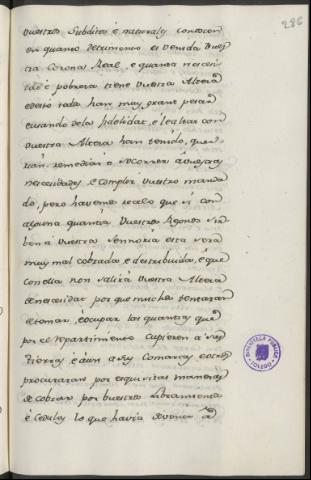 286
vuestros Subditos é naturales conoscen
en quanto detrimento es venida vues
tra Corona Real, e quanta necesi
dad é pobreza tiene vuestra Alteza
é esto todos han muy grant pesar
é usando dela fidelidat, é lealtat con
vuestra Alteza han tenido, quer
rian remediar e socorrer á vuestras
necesidades, é complir vuestro manda
do, pero havemos recelo que si con
alguna quantia vuestros Regnos sir
ben á vuestra Sennoria esta será
muy mal cobrada, e destribuida, é que
con ella non saldrá vuestra Alteza
de necesidat por que muchos tentarán
de tomar, é ocupar las quantias que
por el repartimiento cupieren á sus
tierras é aun á sus Comarcas é otros
procuraran por esquisitas maneras
de cobrar por vuestros Libramientos
é Cedulas lo que havia de venir á
BIBLIOTECA PÚBLICA
TOLEDO